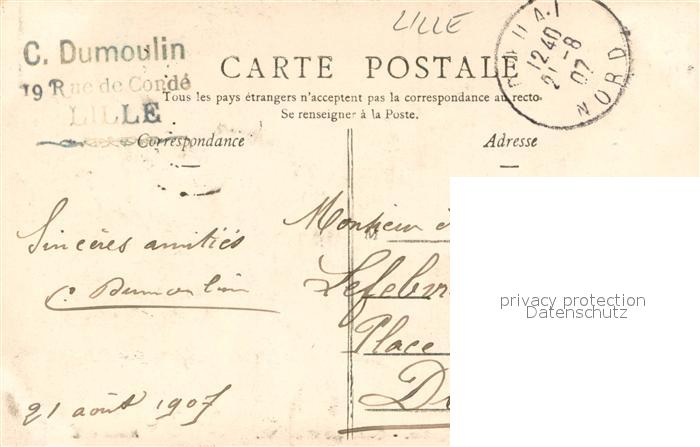 LILLE
C. Dumoulin
19 Rue de Condé
LILLE
CARTE POSTALE
Tous les pays étrangers n'acceptent pas la correspondance au recto.
Se renseigner à la Poste.
1240
21-8
07
NORD
Correspondance
Adresse
Sincères amitiés
C. Dumoulin
21 août 1907
Monsieur
M
Place
privacy protection
Datenschutz